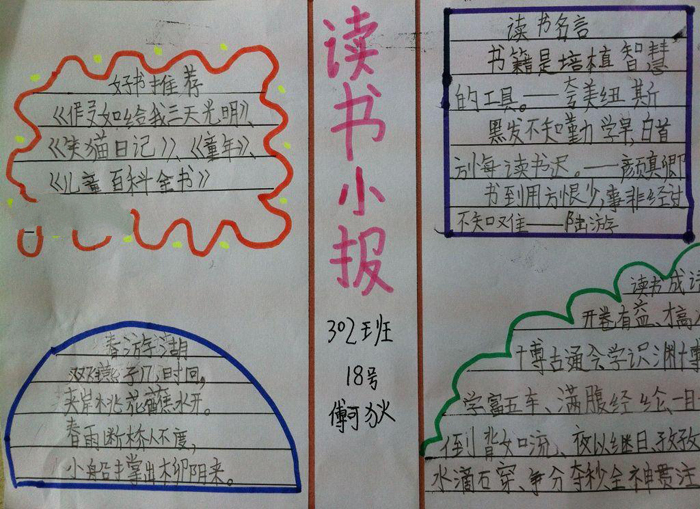 好书推荐
《假如给我三天光明》、
《笑猫日记》、《童年》、
《儿童百科全书》
春游湖
双燕子几时回,
夹岸桃花蘸水开。
春雨断桥人不度,
小船撑出柳阴来。
读书小报
302班
18号
读书名言
书籍是培植智慧
的工具。——夸美纽斯
黑发不知勤学早,白首
方悔读书迟。——颜真卿
书到用方恨少,事非经过
不知难——陆游
读书成语
开卷有益、才高
博古通今学识渊博
学富五车、满腹经纶、一目
倒背如流、夜以继日、孜孜
水滴石穿、争分夺秒全神贯注